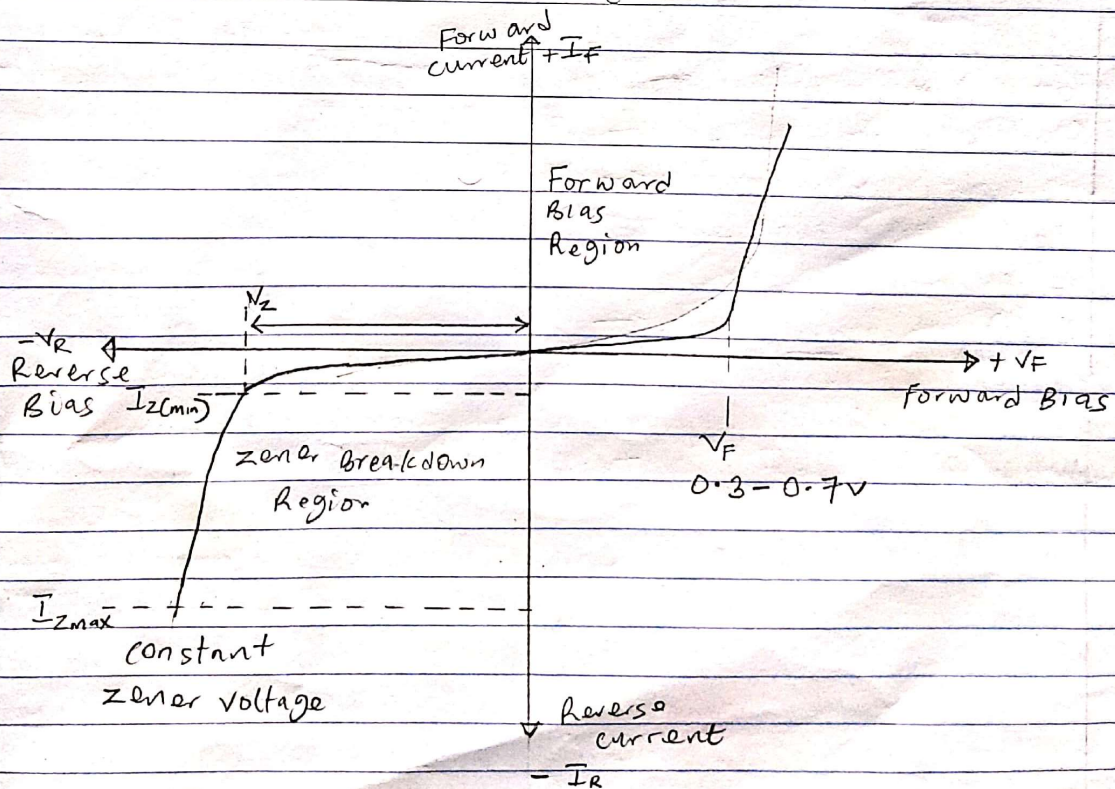 Forward
current + I_F
Forward
Bias
Region
V_Z
-V_R
Reverse
Bias
I_Z(min)
+ V_F
Forward Bias
zener Breakdown
Region
V_F
0.3 - 0.7v
I_Zmax
constant
zener voltage
Reverse
current
- I_R